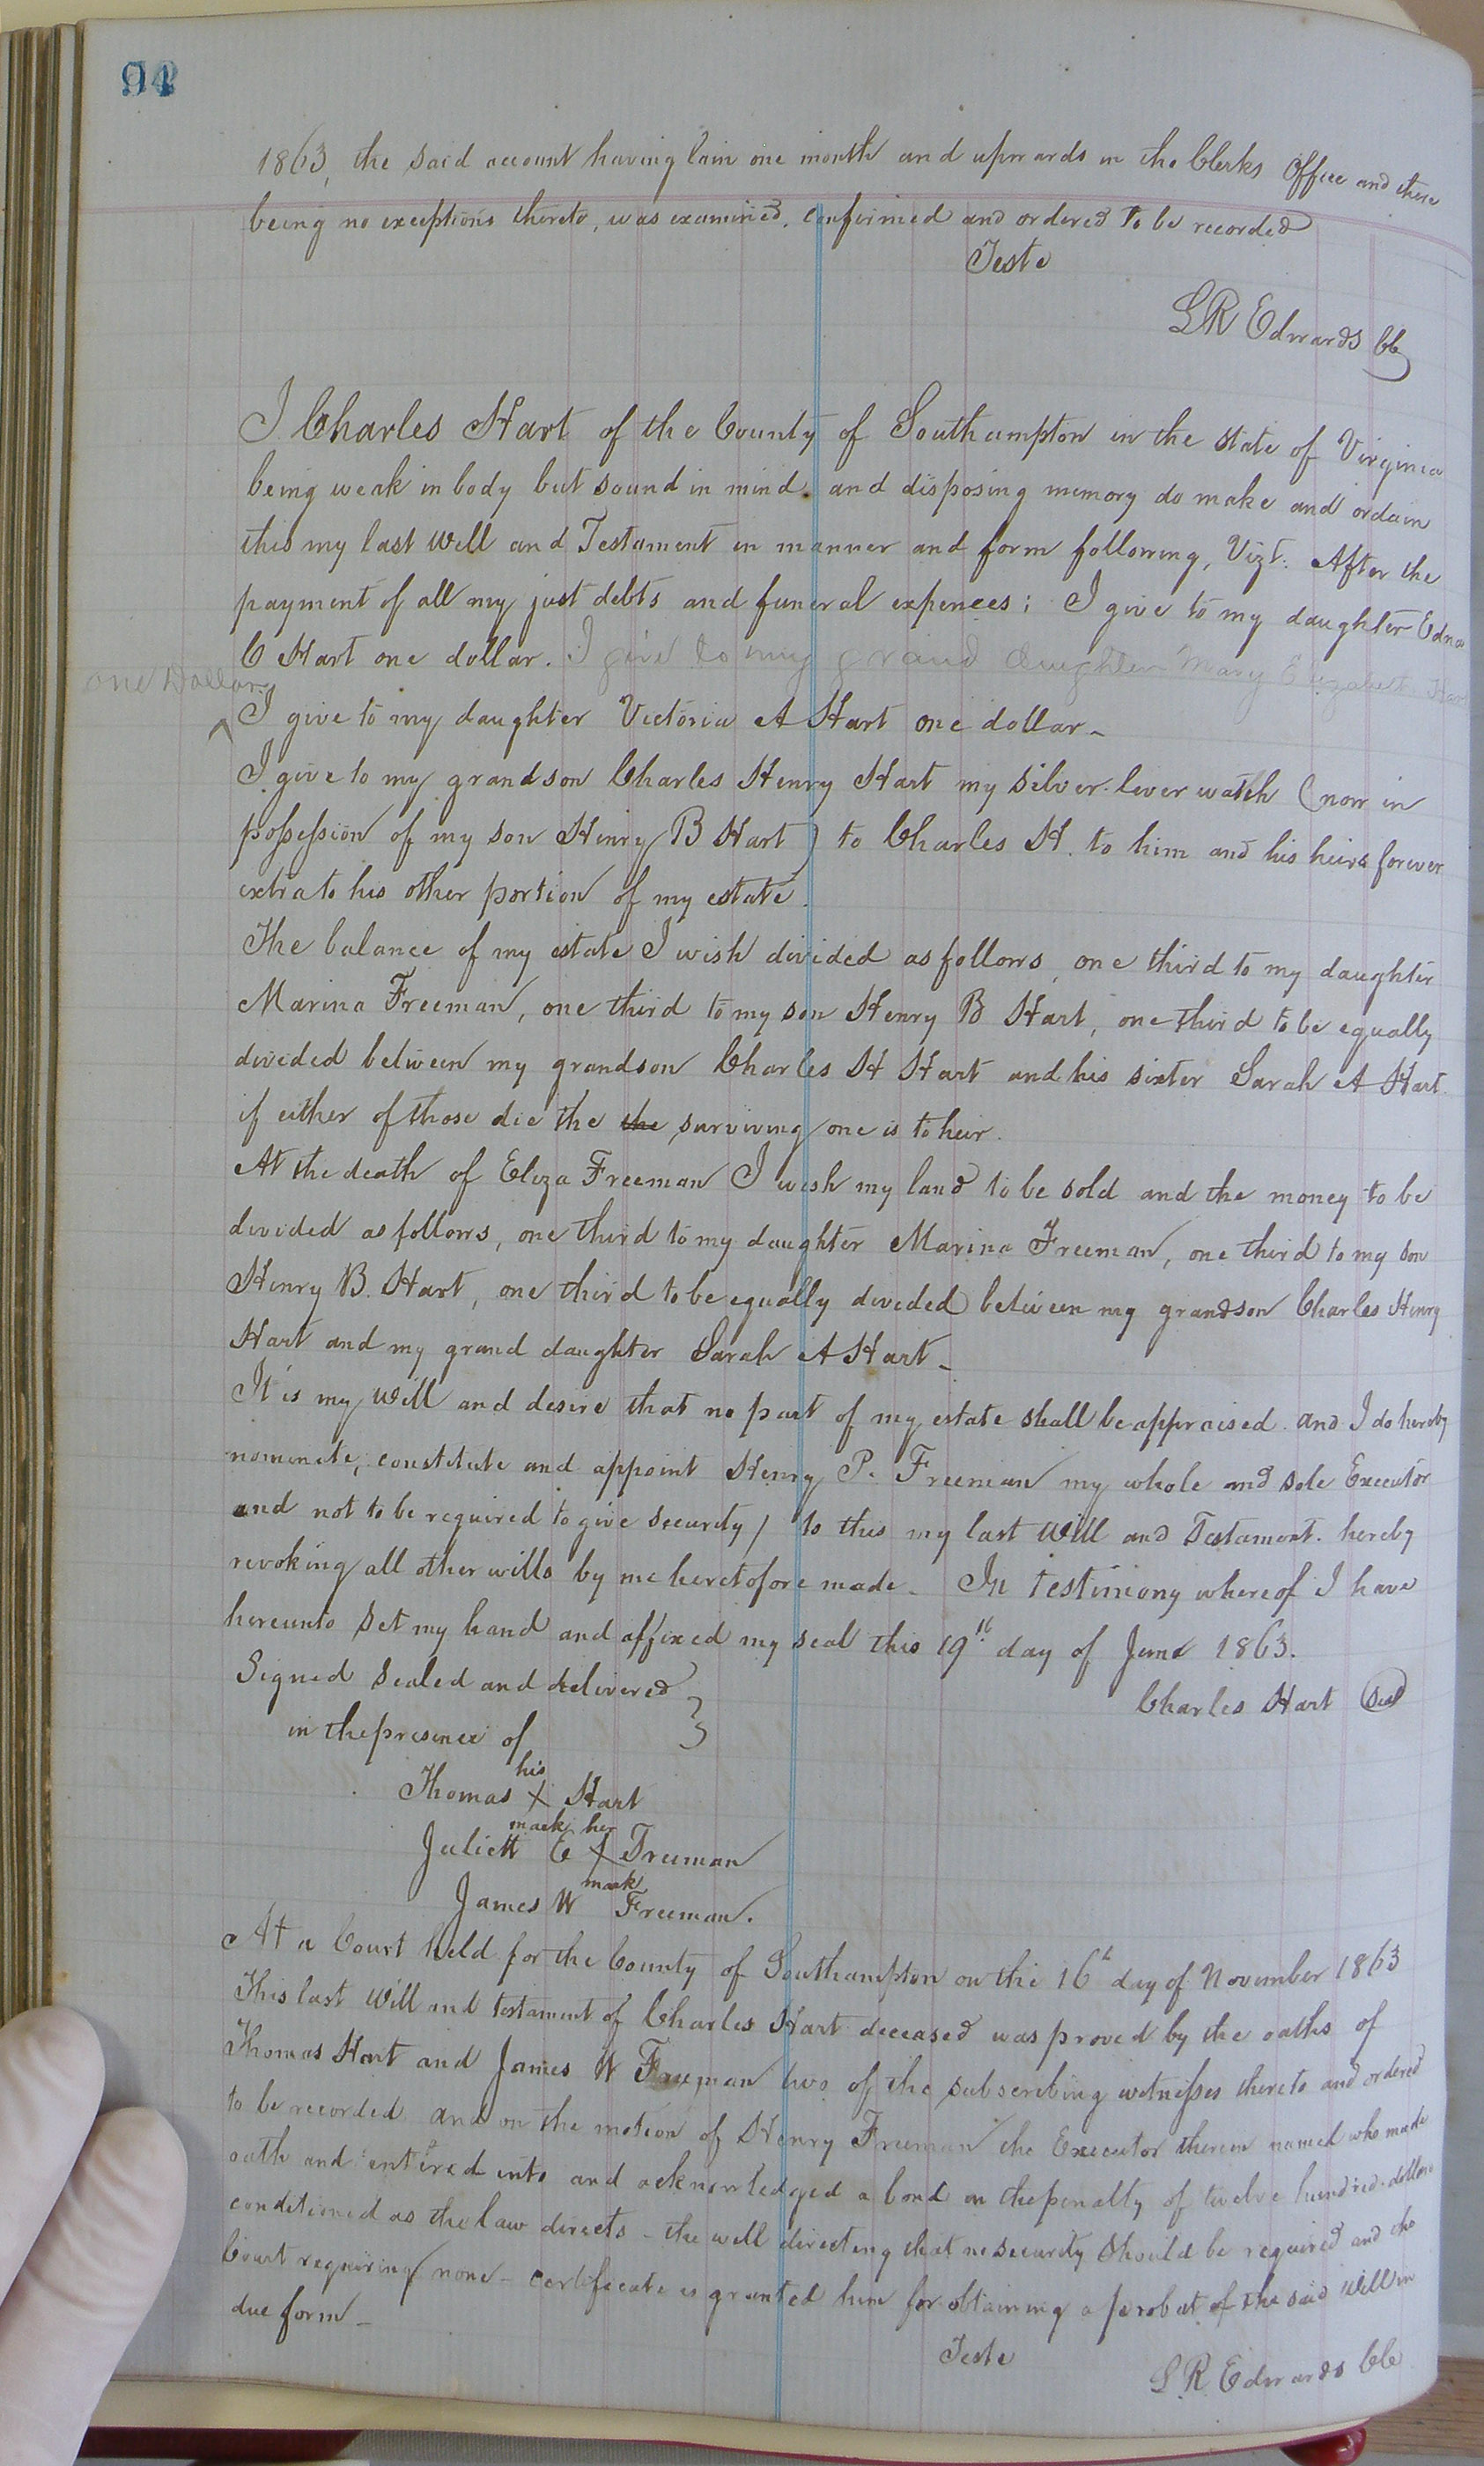 94
1863, the said account having lain one month and upwards in the Clerks Office and there
being no exceptions thereto, was examined, confirmed and ordered to be recorded
Teste
L R Edwards CC
I Charles Hart of the County of Southampton in the State of Virginia
being weak in body but sound in mind and disposing memory do make and ordain
this my last Will and Testament in manner and form following, Vizt: After the
payment of all my just debts and funeral expences; I give to my daughter Edna
C Hart one dollar. I give to my grand daughter Mary Elizabeth Hart
one Dollar
^ I give to my daughter Victoria A Hart one dollar -
I give to my grandson Charles Henry Hart my silver lever watch (now in
possession of my son Henry B Hart) to Charles H. to him and his heirs forever
extra to his other portion of my estate.
The balance of my estate I wish divided as follows, one third to my daughter
Marina Freeman, one third to my son Henry B Hart, one third to be equally
divided between my grandson Charles H Hart and his sister Sarah A Hart.
if either of those die the the surviving one is to heir.
At the death of Eliza Freeman I wish my land to be sold and the money to be
divided as follows, one third to my daughter Marina Freeman, one third to my son
Henry B. Hart, one third to be equally divided between my grandson Charles Henry
Hart and my grand daughter Sarah A Hart -
It is my will and desire that no part of my estate shall be appraised. and I do hereby
nominate, constitute and appoint Henry P. Freeman my whole and sole Executor
and not to be required to give security / to this my last Will and Testament. hereby
revoking all other wills by me heretofore made - In testimony whereof I have
hereunto set my hand and affixed my seal this 19th day of June 1863.
Signed sealed and delivered }
Charles Hart Seal
in the presence of
his
Thomas X Hart
mark her
Juliett E X Freeman
mark
James W Freeman.
At a Court held for the County of Southampton on the 16th day of November 1863
This last Will and testament of Charles Hart deceased was proved by the oaths of
Thomas Hart and James W Freeman two of the subscribing witnesses thereto and ordered
to be recorded and on the motion of Henry Freeman the Executor therein named who made
oath and entered into and acknowledged a bond in the penalty of twelve hundred dollars
conditioned as the law directs - the will directing that no security should be required and the
Court requiring none - certificate is granted him for obtaining a probat of the said Will in
due form -
Teste
L R Edwards CC